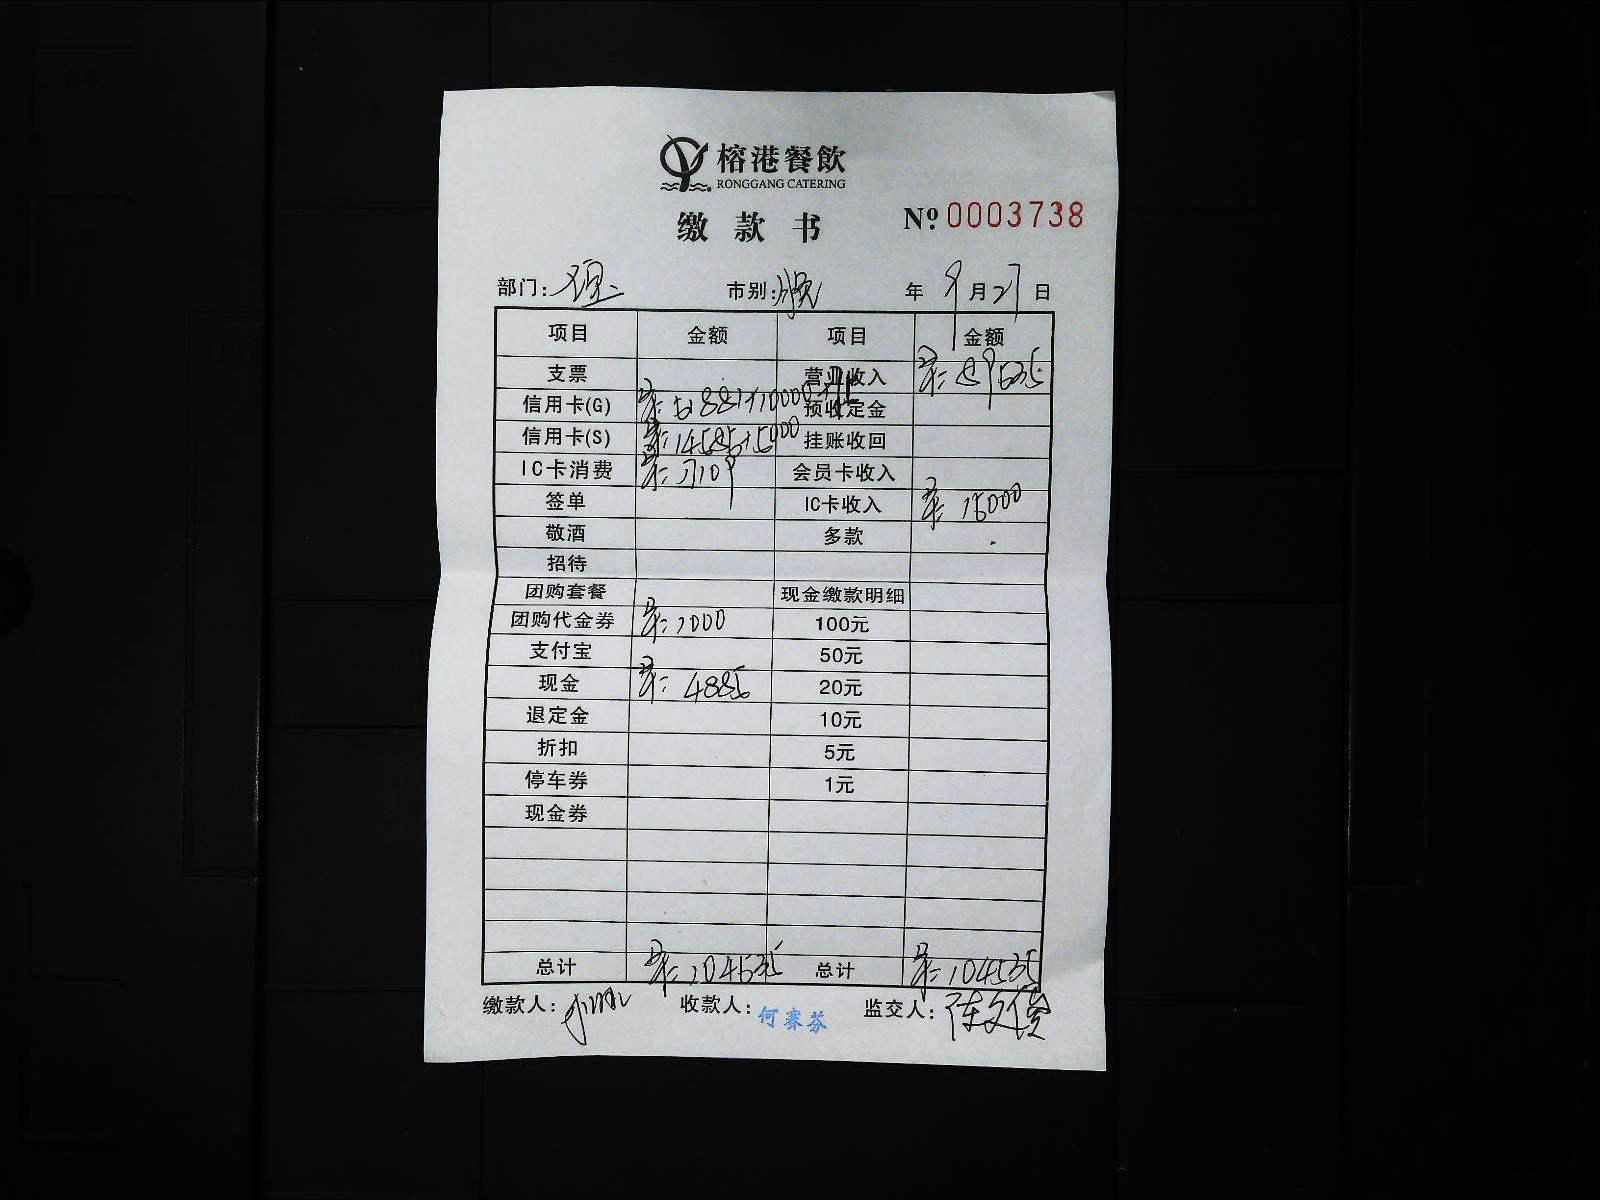 榕港餐飲
RONGGANG CATERING
缴款书 № 0003738
部门: 市别: 年 9月27日
项目 金额 项目 金额
支票 营业收入
信用卡(G) 预收定金
信用卡(S) 14585+5000 挂账收回
IC卡消费 会员卡收入
签单 IC卡收入 15000
敬酒 多款
招待
团购套餐 现金缴款明细
团购代金券 1000 100元
支付宝 50元
现金 4885 20元
退定金 10元
折扣 5元
停车券 1元
现金券
总计 104535 总计 104535
缴款人: 收款人: 何赛芬 监交人: